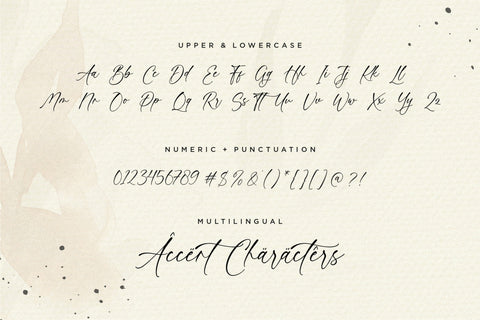 UPPER & LOWERCASE
Aa Bb Cc Dd Ee Ff Gg Hh Ii Jj Kk Ll
Mm Nn Oo Pp Qq Rr Ss Tt Uu Vv Ww Xx Yy Zz
NUMERIC + PUNCTUATION
0123456789 #$%&'()*[]{}@?!
MULTILINGUAL
Âccënt Chäräctêrs